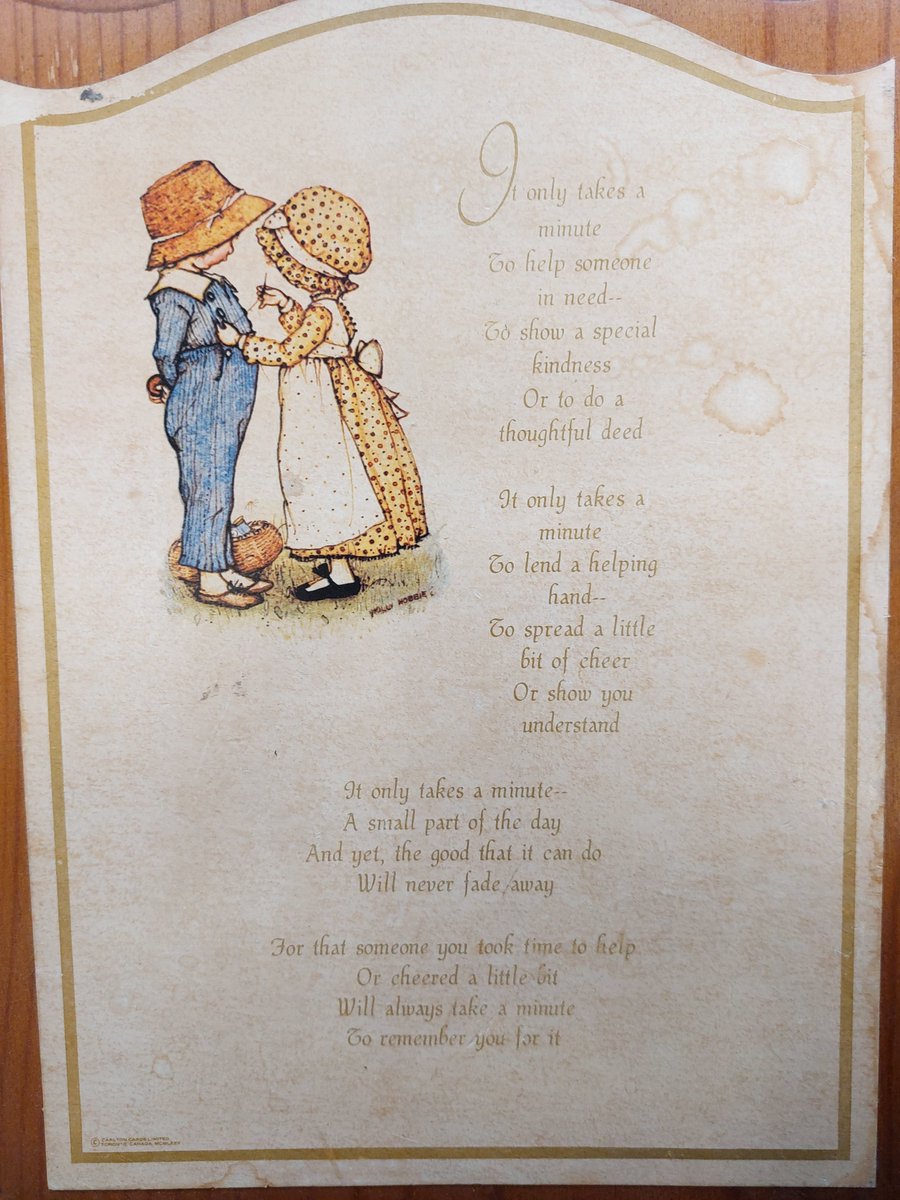 It only takes a
minute
To help someone
in need--
To show a special
kindness
Or to do a
thoughtful deed
It only takes a
minute
To lend a helping
hand--
To spread a little
bit of cheer
Or show you
understand
It only takes a minute--
A small part of the day
And yet, the good that it can do
Will never fade away
For that someone you took time to help
Or cheered a little bit
Will always take a minute
To remember you for it
HOLLY HOBBIE
© CARLTON CARDS LIMITED
TORONTO CANADA